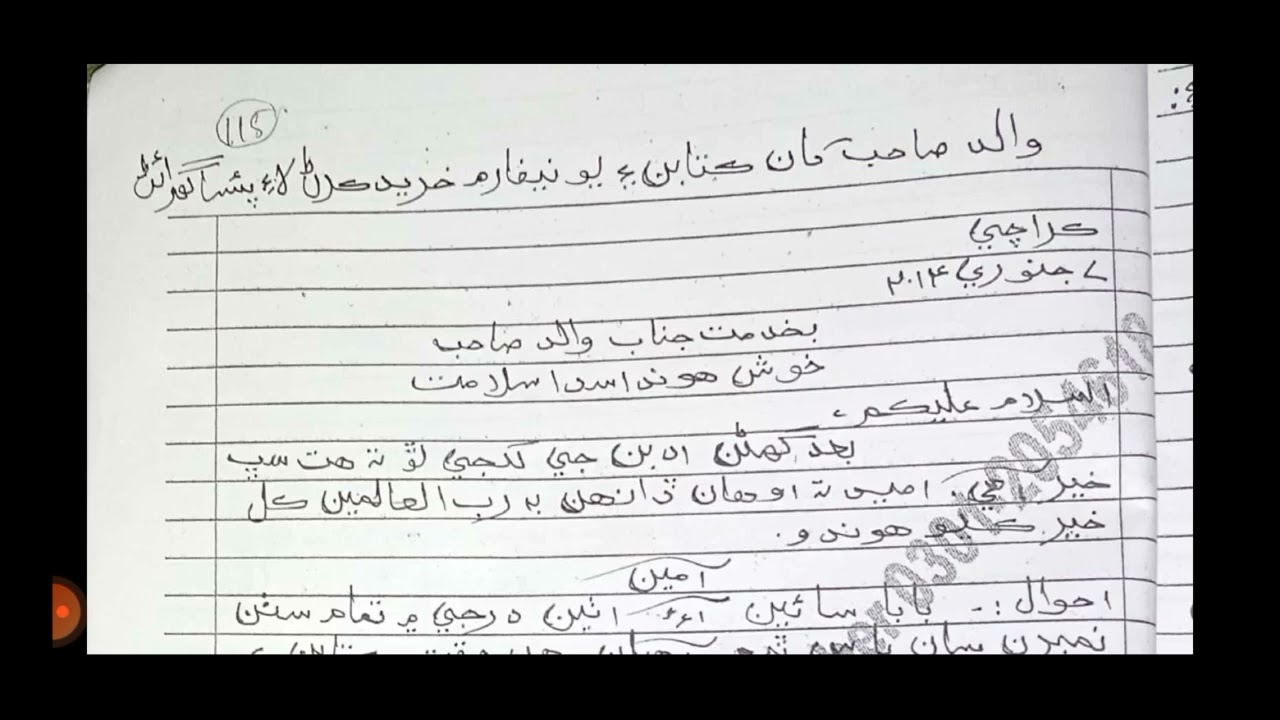 115
والد صاحب کان ڪتابن ۽ يونيفارم خريد ڪرڻ لاءِ پئسا گهرائڻ
ڪراچي
۷ جنوري ۲۰۱۴
بخدمت جناب والد صاحب
خوش هوندا سدا سلامت
السلام عليڪم،
بعد گهڻن ادبن جي لکجي ٿو ته هت سڀ
خير آهي. اميد ته اوهان ڏانهن به رب العالمين کل
خير ڪيو هوندو.
آمين
احوال :- بابا سائين آءٌ اٺين درجي ۾ تمام سٺن
نمبرن سان پاس